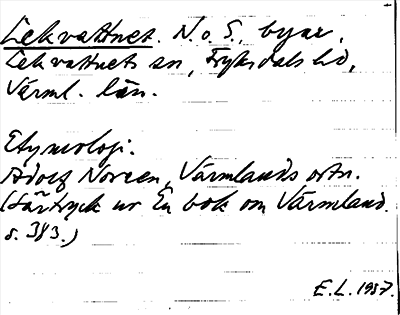 Lekvattnet. N. o S., byar,
Lekvattnets sn, Fryksdals hd,
Värml. län.
Etymologi.
Adolf Noreen, Värmlands ortn.
(Särtryck ur En bok om Värmland.
s. 383.)
E.L. 1937.